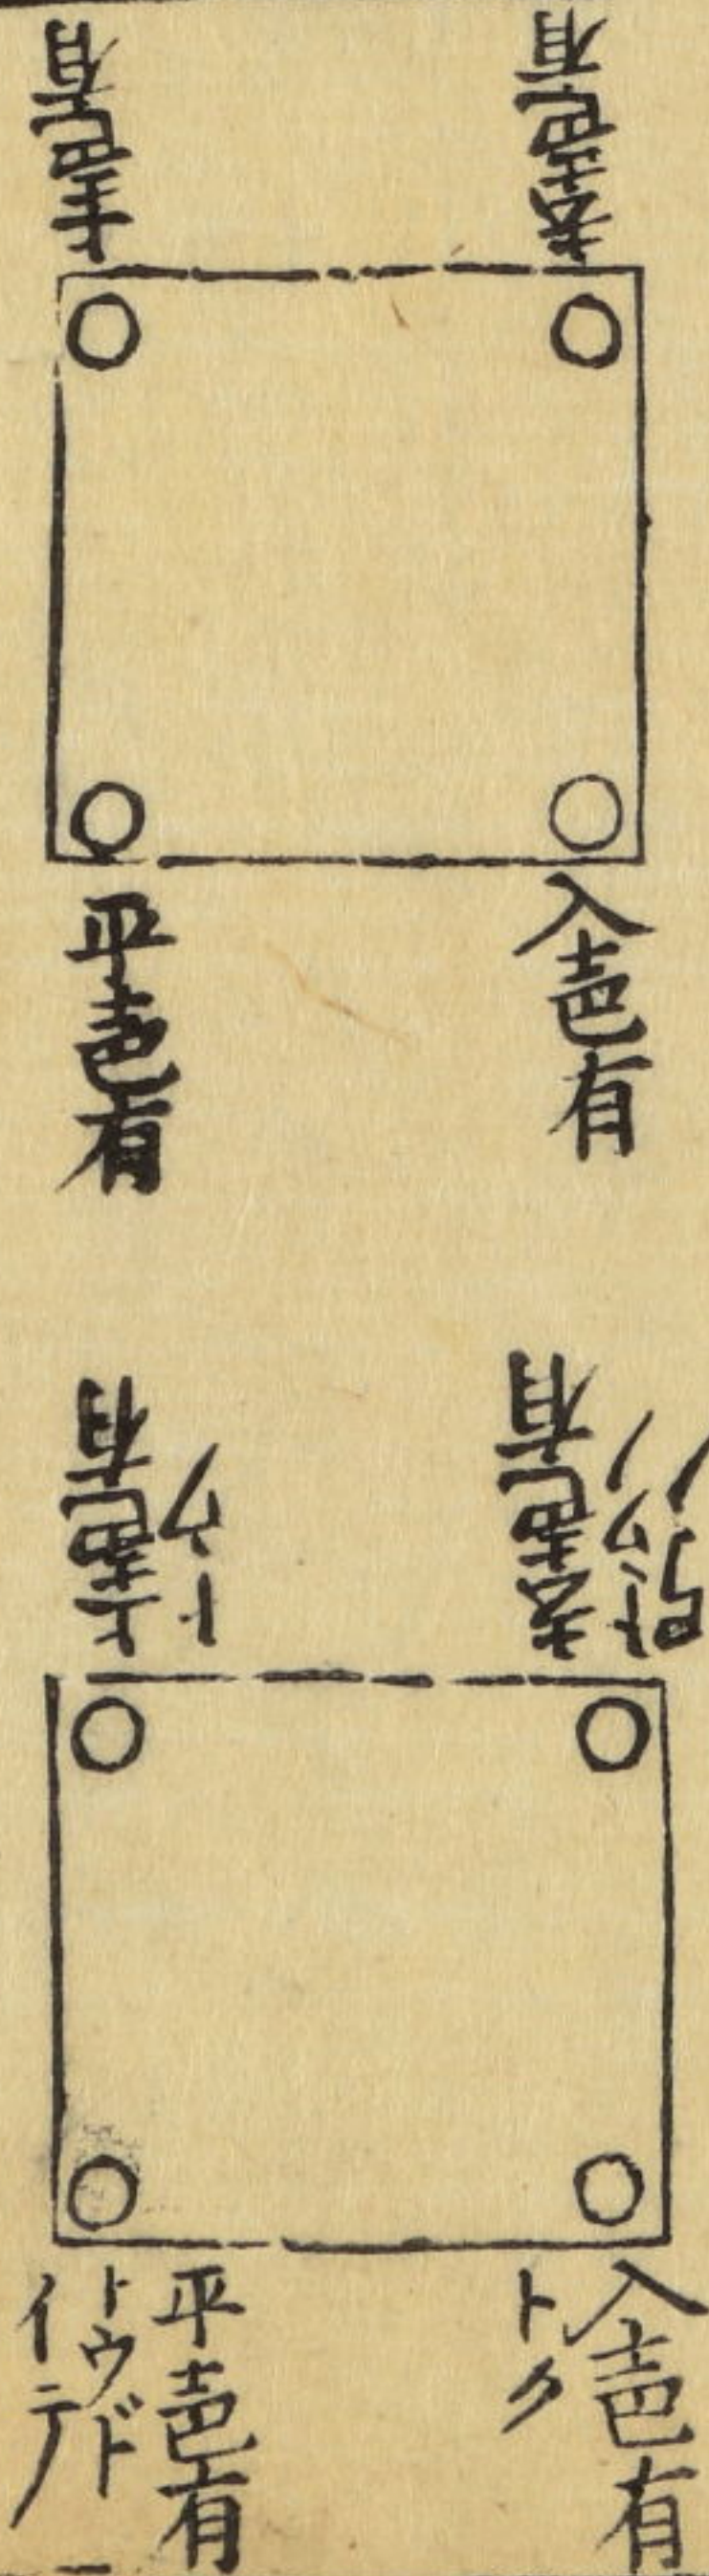 去声有
上声有
入声有
平声有
去声有
トウ
引
上声有
トウ
入声有
トク
平声有
トウド
イテ